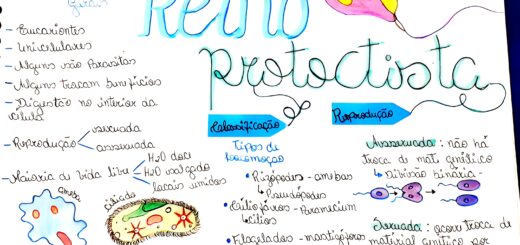 Gerais
Reino
protoctista
- Eucariontes
- Unicelulares
- Alguns são Parasitas
- Alguns trocam benefícios
- Digestão no interior da
célula
- Reprodução
sexuada
assexuada
- Maioria de vida livre
H2O doce
H2O salgado
locais úmidos
ameba
ciliado
Classificação
Tipos de
locomoção
• Rizópodes - amebas
↳ Pseudópodes
• Cilióforos - Paramecium
↳ cílios
• Flagelados - mastigóforos
Reprodução
Assexuada: não há
troca de mat. genético
↳ Divisão binária -
Sexuada: ocorre troca de
material genético por